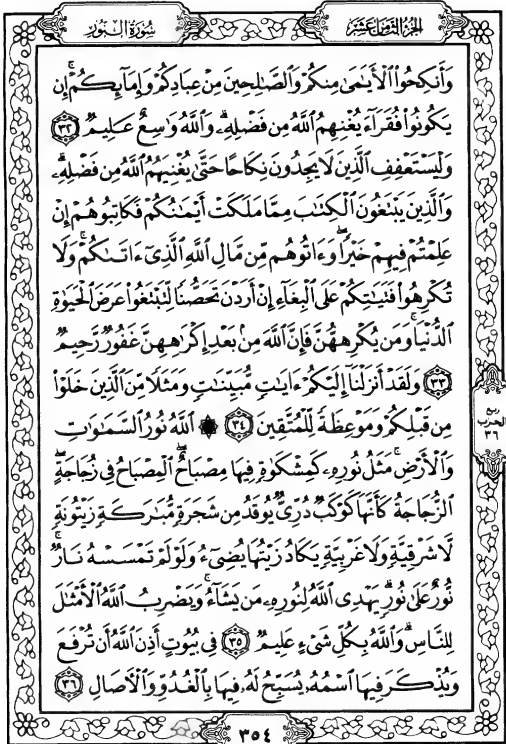 سُورَةُ النُّورِ
الجُزْءُ الثَّامِنَ عَشَرَ
وَأَنكِحُوا۟ ٱلْأَيَٰمَىٰ مِنكُمْ وَٱلصَّٰلِحِينَ مِنْ عِبَادِكُمْ وَإِمَآئِكُمْ ۚ إِن
يَكُونُوا۟ فُقَرَآءَ يُغْنِهِمُ ٱللَّهُ مِن فَضْلِهِۦ ۗ وَٱللَّهُ وَٰسِعٌ عَلِيمٌ ٣٢
وَلْيَسْتَعْفِفِ ٱلَّذِينَ لَا يَجِدُونَ نِكَاحًا حَتَّىٰ يُغْنِيَهُمُ ٱللَّهُ مِن فَضْلِهِۦ ۗ
وَٱلَّذِينَ يَبْتَغُونَ ٱلْكِتَٰبَ مِمَّا مَلَكَتْ أَيْمَٰنُكُمْ فَكَاتِبُوهُمْ إِنْ
عَلِمْتُمْ فِيهِمْ خَيْرًا ۖ وَءَاتُوهُم مِّن مَّالِ ٱللَّهِ ٱلَّذِىٓ ءَاتَىٰكُمْ ۚ وَلَا
تُكْرِهُوا۟ فَتَيَٰتِكُمْ عَلَى ٱلْبِغَآءِ إِنْ أَرَدْنَ تَحَصُّنًا لِّتَبْتَغُوا۟ عَرَضَ ٱلْحَيَوٰةِ
ٱلدُّنْيَا ۚ وَمَن يُكْرِههُّنَّ فَإِنَّ ٱللَّهَ مِنۢ بَعْدِ إِكْرَٰهِهِنَّ غَفُورٌ رَّحِيمٌ
٣٣ وَلَقَدْ أَنزَلْنَآ إِلَيْكُمْ ءَايَٰتٍ مُّبَيِّنَٰتٍ وَمَثَلًا مِّنَ ٱلَّذِينَ خَلَوْا۟
مِن قَبْلِكُمْ وَمَوْعِظَةً لِّلْمُتَّقِينَ ٣٤ ۞ ٱللَّهُ نُورُ ٱلسَّمَٰوَٰتِ
وَٱلْأَرْضِ ۚ مَثَلُ نُورِهِۦ كَمِشْكَوٰةٍ فِيهَا مِصْبَاحٌ ۖ ٱلْمِصْبَاحُ فِى زُجَاجَةٍ ۖ
ٱلزُّجَاجَةُ كَأَنَّهَا كَوْكَبٌ دُرِّىٌّ يُوقَدُ مِن شَجَرَةٍ مُّبَٰرَكَةٍ زَيْتُونَةٍ
لَّا شَرْقِيَّةٍ وَلَا غَرْبِيَّةٍ يَكَادُ زَيْتُهَا يُضِىٓءُ وَلَوْ لَمْ تَمْسَسْهُ نَارٌ ۚ
نُّورٌ عَلَىٰ نُورٍ ۗ يَهْدِى ٱللَّهُ لِنُورِهِۦ مَن يَشَآءُ ۚ وَيَضْرِبُ ٱللَّهُ ٱلْأَمْثَٰلَ
لِلنَّاسِ ۗ وَٱللَّهُ بِكُلِّ شَىْءٍ عَلِيمٌ ٣٥ فِى بُيُوتٍ أَذِنَ ٱللَّهُ أَن تُرْفَعَ
وَيُذْكَرَ فِيهَا ٱسْمُهُۥ يُسَبِّحُ لَهُۥ فِيهَا بِٱلْغُدُوِّ وَٱلْءَاصَالِ ٣٦
ربع
الحزب
٣٦
٣٥٤